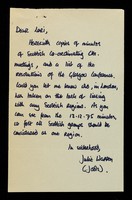 Dear Luci,
Herewith copies of minutes
of Scottish Co-ordinating Ctt.
meetings, and a list of the
resolutions of the Glasgow Conference.
Could you let me know who, in London,
has taken on the task of liaising
with any Scottish Regions. As you
can see from the 13.12.75 minutes
is felt all Scottish groups should be
considered as one region.
In sisterhood,
Julie